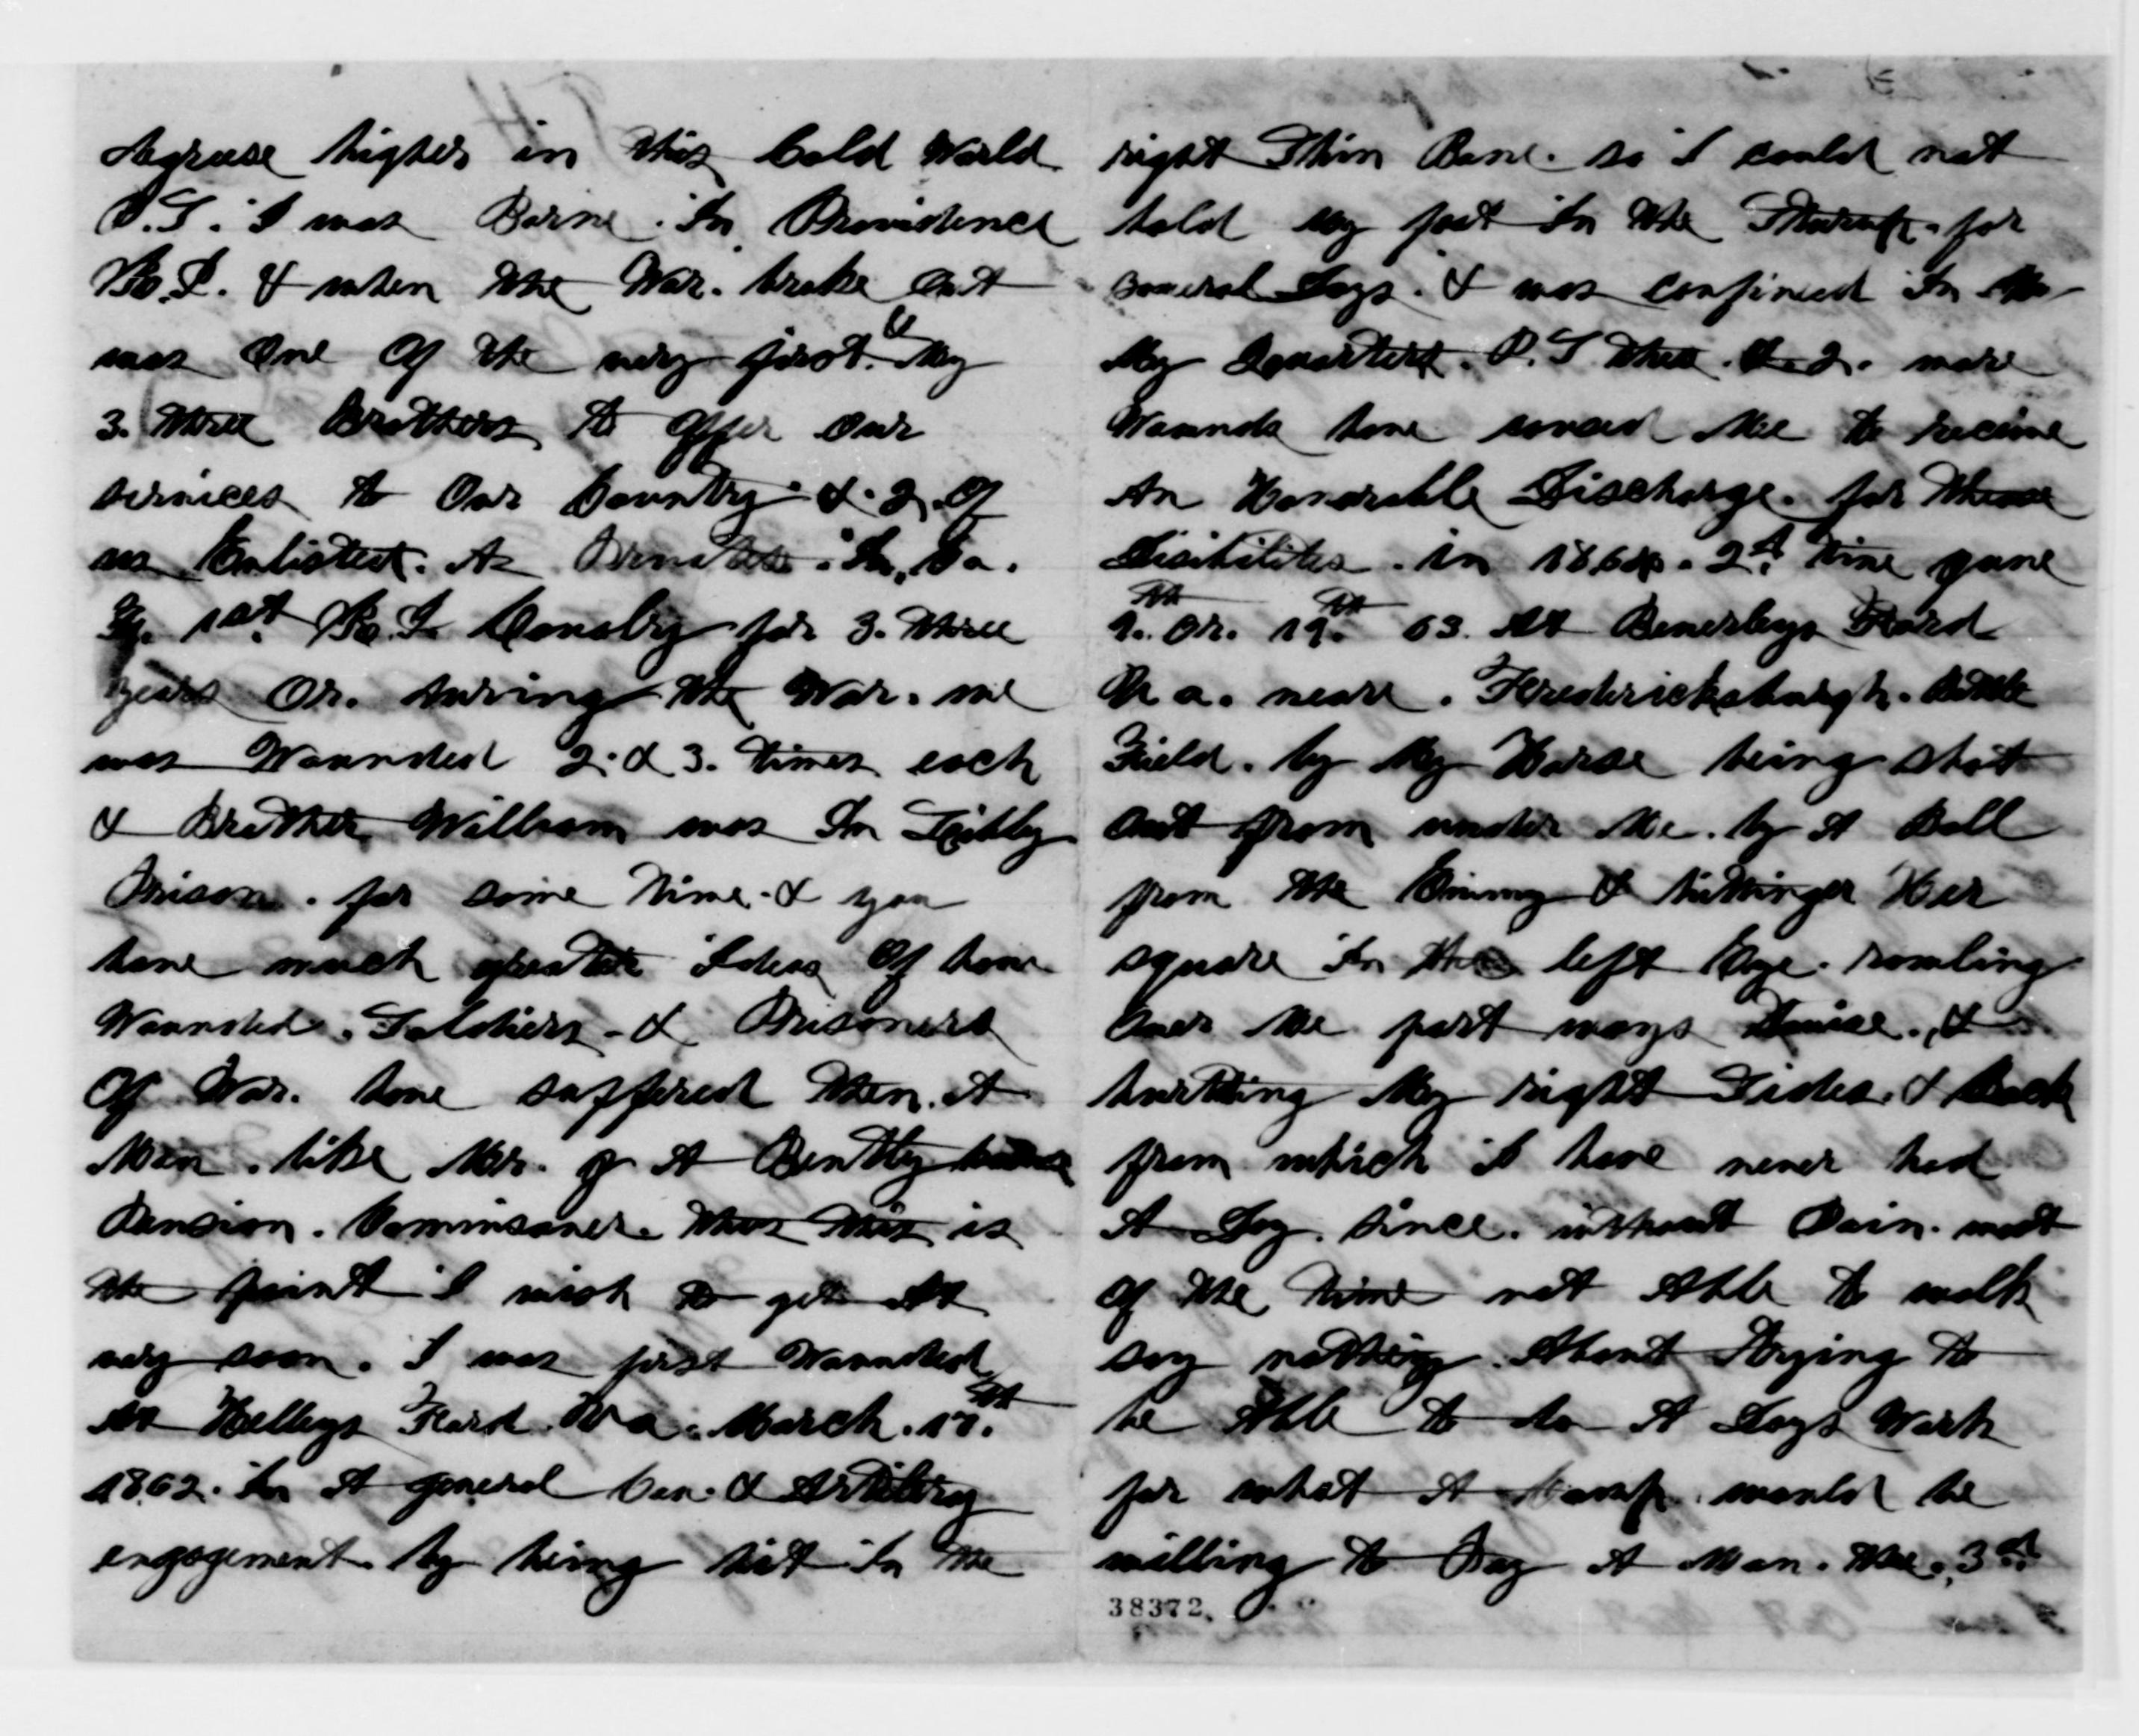 degreese higher in this Cold World
P.S. I was Borne. In Providence
R.I. & when the War. broke Out
was One Of the very first. & My
3. three Brothers to Offer Our
services to Our Country. & 2. Of
us Enlisted. As Privates. In, Co.
G. 1st R.I. Cavalry for 3. three
years Or. during the War. we
was Wounded 2. & 3. times each
& Brother William was In Libby
Prison. for some time. & you
have much greater Idea Of how
Wounded. Soldiers. & Prisoners
Of War. have suffered then. A
Man. like Mr. J A Bentley
Pension. Comminsoner. this is
the point I wish to get At
very soon. I was first Wounded
At Kelleys Ford. Va. March. 17.th
1862. In A general Cav. & Artillery
engagement. by being hit In the
right Shin Bone. so I could not
hold My foot In the Sturup. for
several Days. & was confined In
My Quarters. P.S. thee. & 2. more
Wounds have caused Me to recieve
An Honorable Discharge. for those
Disibilites. in 1864. 2d. time June
9.th Or. 19.th 63. At Beverleys Ford
Va. neare. Fredericksburgh. Battle
Field. by My Horse being shot
Out from under Me. by A Ball
from the Enimy & hittinger Her
square In the left Eye. rowling
Over Me part ways twice. &
hurtting My right Sides. & Back
from which I have never had
A Day. since. without Pain. most
Of the time not Able to walk
say nothing. About trying to
be Able to do A Days Work
for what A would be
willing to Pay A Man. the. 3d.
38372.